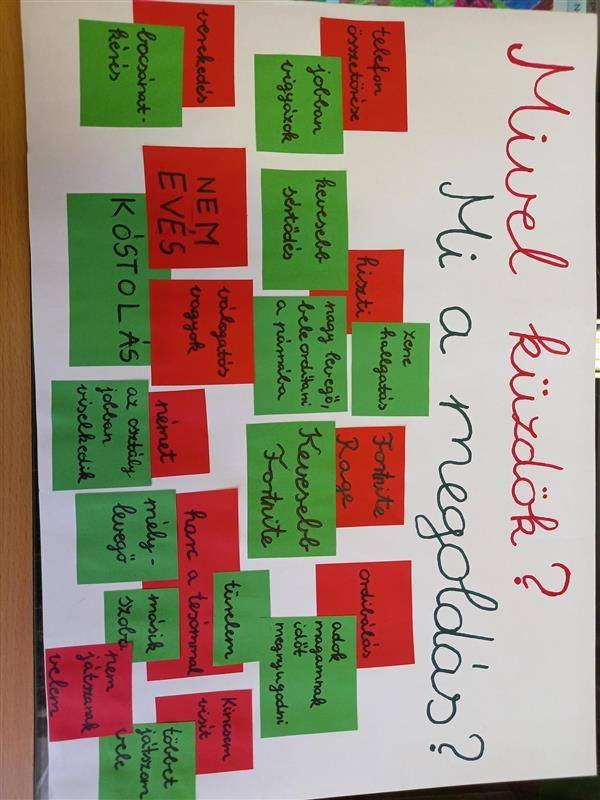 Mivel küzdök?
Mi a megoldás?
telefon
összetörése
jobban
vigyázok
verekedés
bocsánat-
kérés
hiszti
kevesebb
sértődés
zene
hallgatás
nagy levegő,
beleordítani
a párnába
NEM
EVÉS
KÓSTOLÁS
válogatós
vagyok
Fortnite
Rage
Kevesebb
Fortnite
német
az osztály
jobban
viselkedik
ordibálás
adok
magamnak
időt
megnyugodni
harc a tesómmal
türelem
mély-
levegő
másik
szoba
Kincsem
visít
többet
játszom
vele
nem
játszanak
velem